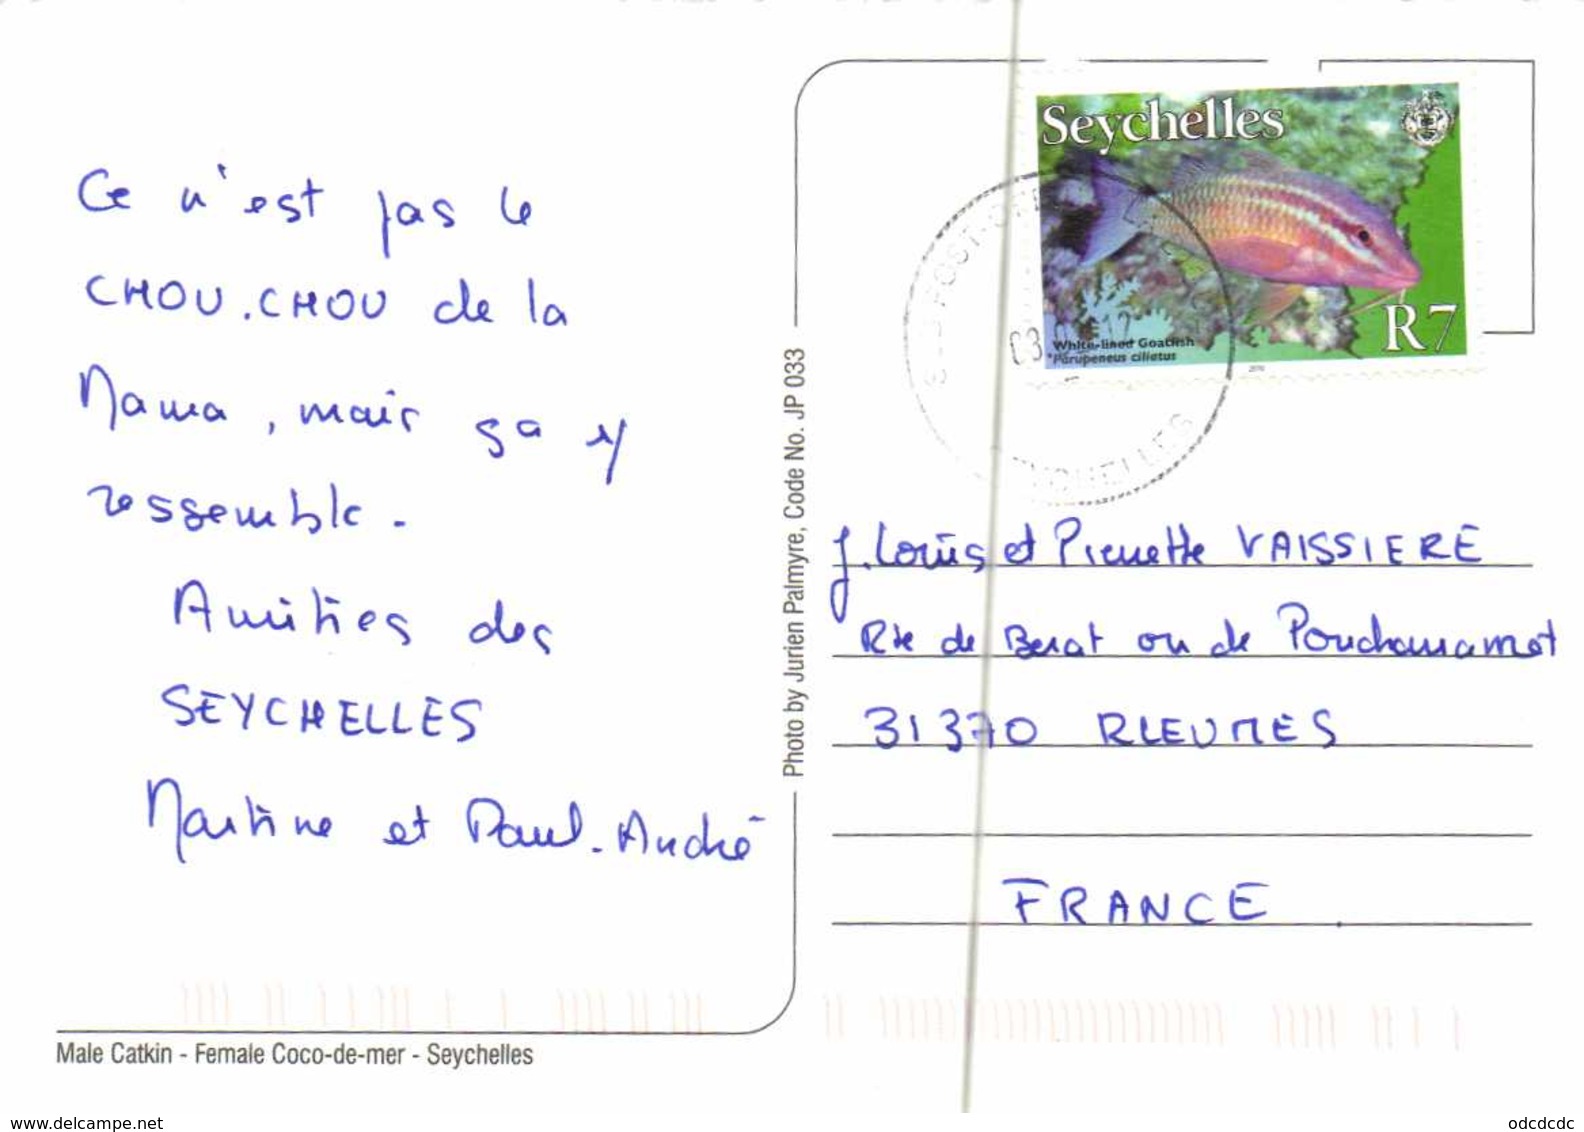 Ce n'est pas le
CHOU.CHOU de la
Mama, mais ça y
ressemble.
Amitiés des
SEYCHELLES
Martine et Paul-André
Male Catkin - Female Coco-de-mer - Seychelles
Photo by Jurien Palmyre, Code No. JP 033
Seychelles
White-lined Goatfish
Parupeneus ciliatus
R7
2010
POST OFF
03
SEYCHELLES
J. Louis et Pierrette VAISSIERE
Rte de Berat ou de
31370 RIEUMES
FRANCE
www.delcampe.net
odcdcdc